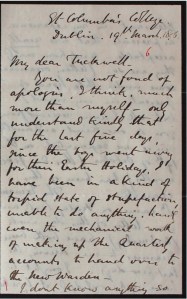 St Columba's College,
Dublin. 19th March
6
My dear Tuckwell,
You are not fond of
apologies I think, much
more than myself - only
understand kindly that
for the last five days
since the boys went away
for their Easter Holidays, I
have been in a kind of
torpid state of stupefaction,
unable to do anything, hard
even the mechanical work
of making up the Quarterly
accounts to hand over to
the New Warden -
I don't know anything so